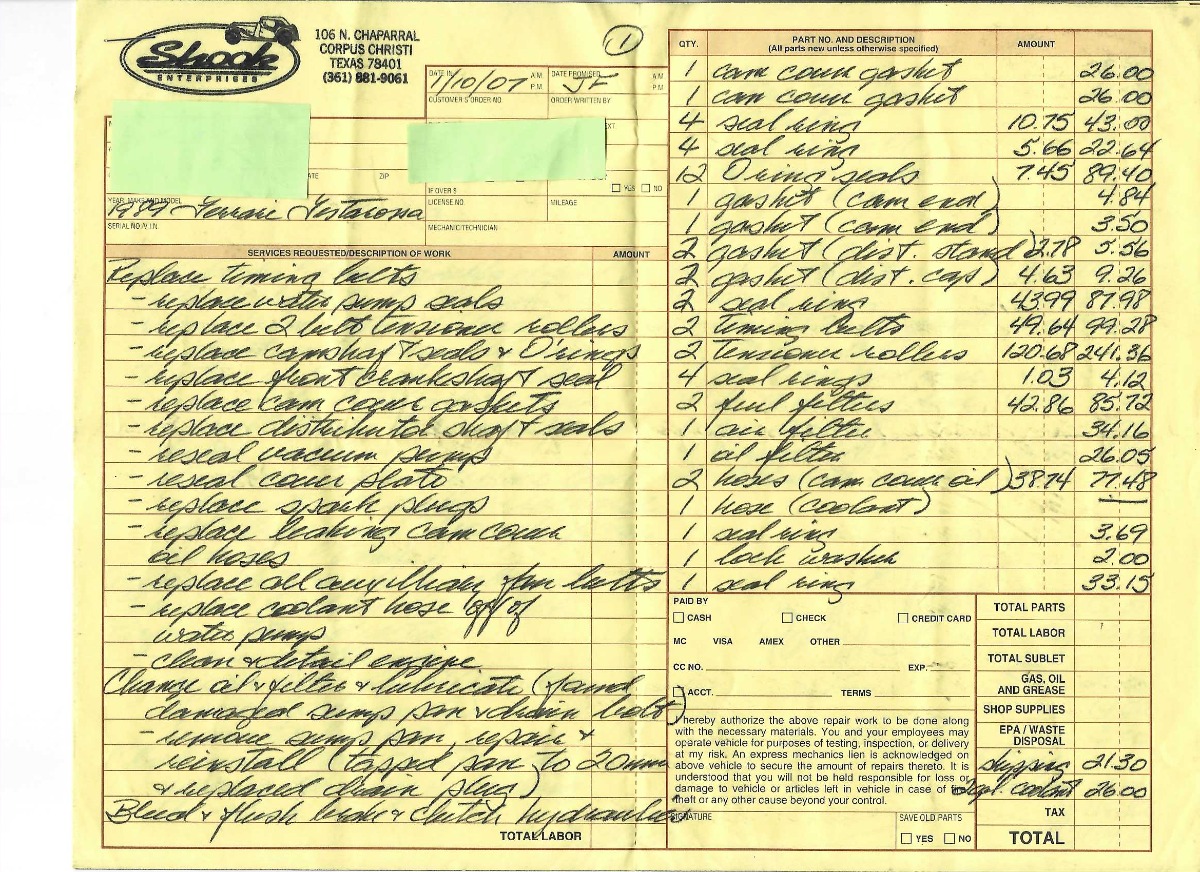 Shook
ENTERPRISES
106 N. CHAPARRAL
CORPUS CHRISTI
TEXAS 78401
(361) 881-9061
1
DATE IN 1/10/07 A.M. P.M.
DATE PROMISED JF A.M. P.M.
CUSTOMER'S ORDER NO.
ORDER WRITTEN BY
ZIP
IF OVER $
YES NO
YEAR, MAKE AND MODEL
1989 Ferrari Testarossa
LICENSE NO.
MILEAGE
SERIAL NO./V.I.N.
MECHANIC/TECHNICIAN
SERVICES REQUESTED/DESCRIPTION OF WORK AMOUNT
Replace timing belts
- replace water pump seals
- replace 2 belt tensioner rollers
- replace camshaft seals & O'rings
- replace front crankshaft seal
- replace cam cover gaskets
- replace distributor shaft seals
- reseal vacuum pump
- reseal cover plate
- replace spark plugs
- replace leaking cam cover
oil hoses
- replace all auxilliary fan belts
- replace coolant hose off of
water pump
- clean & detail engine
Change oil & filter & lubricate (found
damaged sump pan & drain bolt)
- remove sump pan, repair &
reinstall (tapped pan to 20mm
& replaced drain plug)
Bleed & flush brake & clutch hydraulics
TOTAL LABOR
QTY. PART NO. AND DESCRIPTION AMOUNT
(All parts new unless otherwise specified)
1 cam cover gasket 26.00
1 cam cover gasket 26.00
4 seal ring 10.75 43.00
4 seal ring 5.66 22.64
12 O ring seals 7.45 89.40
1 gasket (cam end) 4.84
1 gasket (cam end) 3.50
2 gasket (dist. stand) 2.78 5.56
2 gasket (dist. cap) 4.63 9.26
2 seal ring 43.99 87.98
2 Timing belts 49.64 99.28
2 Tensioner rollers 120.68 241.36
4 seal rings 1.03 4.12
2 fuel filters 42.86 85.72
1 air filter 34.16
1 oil filter 26.05
2 hoses (cam cover oil) 38.74 77.48
1 hose (coolant) —
1 seal ring 3.69
1 lock washer 2.00
1 seal ring 33.15
PAID BY
CASH CHECK CREDIT CARD
MC VISA AMEX OTHER
CC NO. EXP.
ACCT. TERMS
I hereby authorize the above repair work to be done along
with the necessary materials. You and your employees may
operate vehicle for purposes of testing, inspection, or delivery
at my risk. An express mechanics lien is acknowledged on
above vehicle to secure the amount of repairs thereto. It is
understood that you will not be held responsible for loss or
damage to vehicle or articles left in vehicle in case of fire,
theft or any other cause beyond your control.
SIGNATURE
SAVE OLD PARTS
YES NO
TOTAL PARTS
TOTAL LABOR
TOTAL SUBLET
GAS, OIL
AND GREASE
SHOP SUPPLIES
EPA / WASTE
DISPOSAL
shipping 21.30
coolant 26.00
TAX
TOTAL